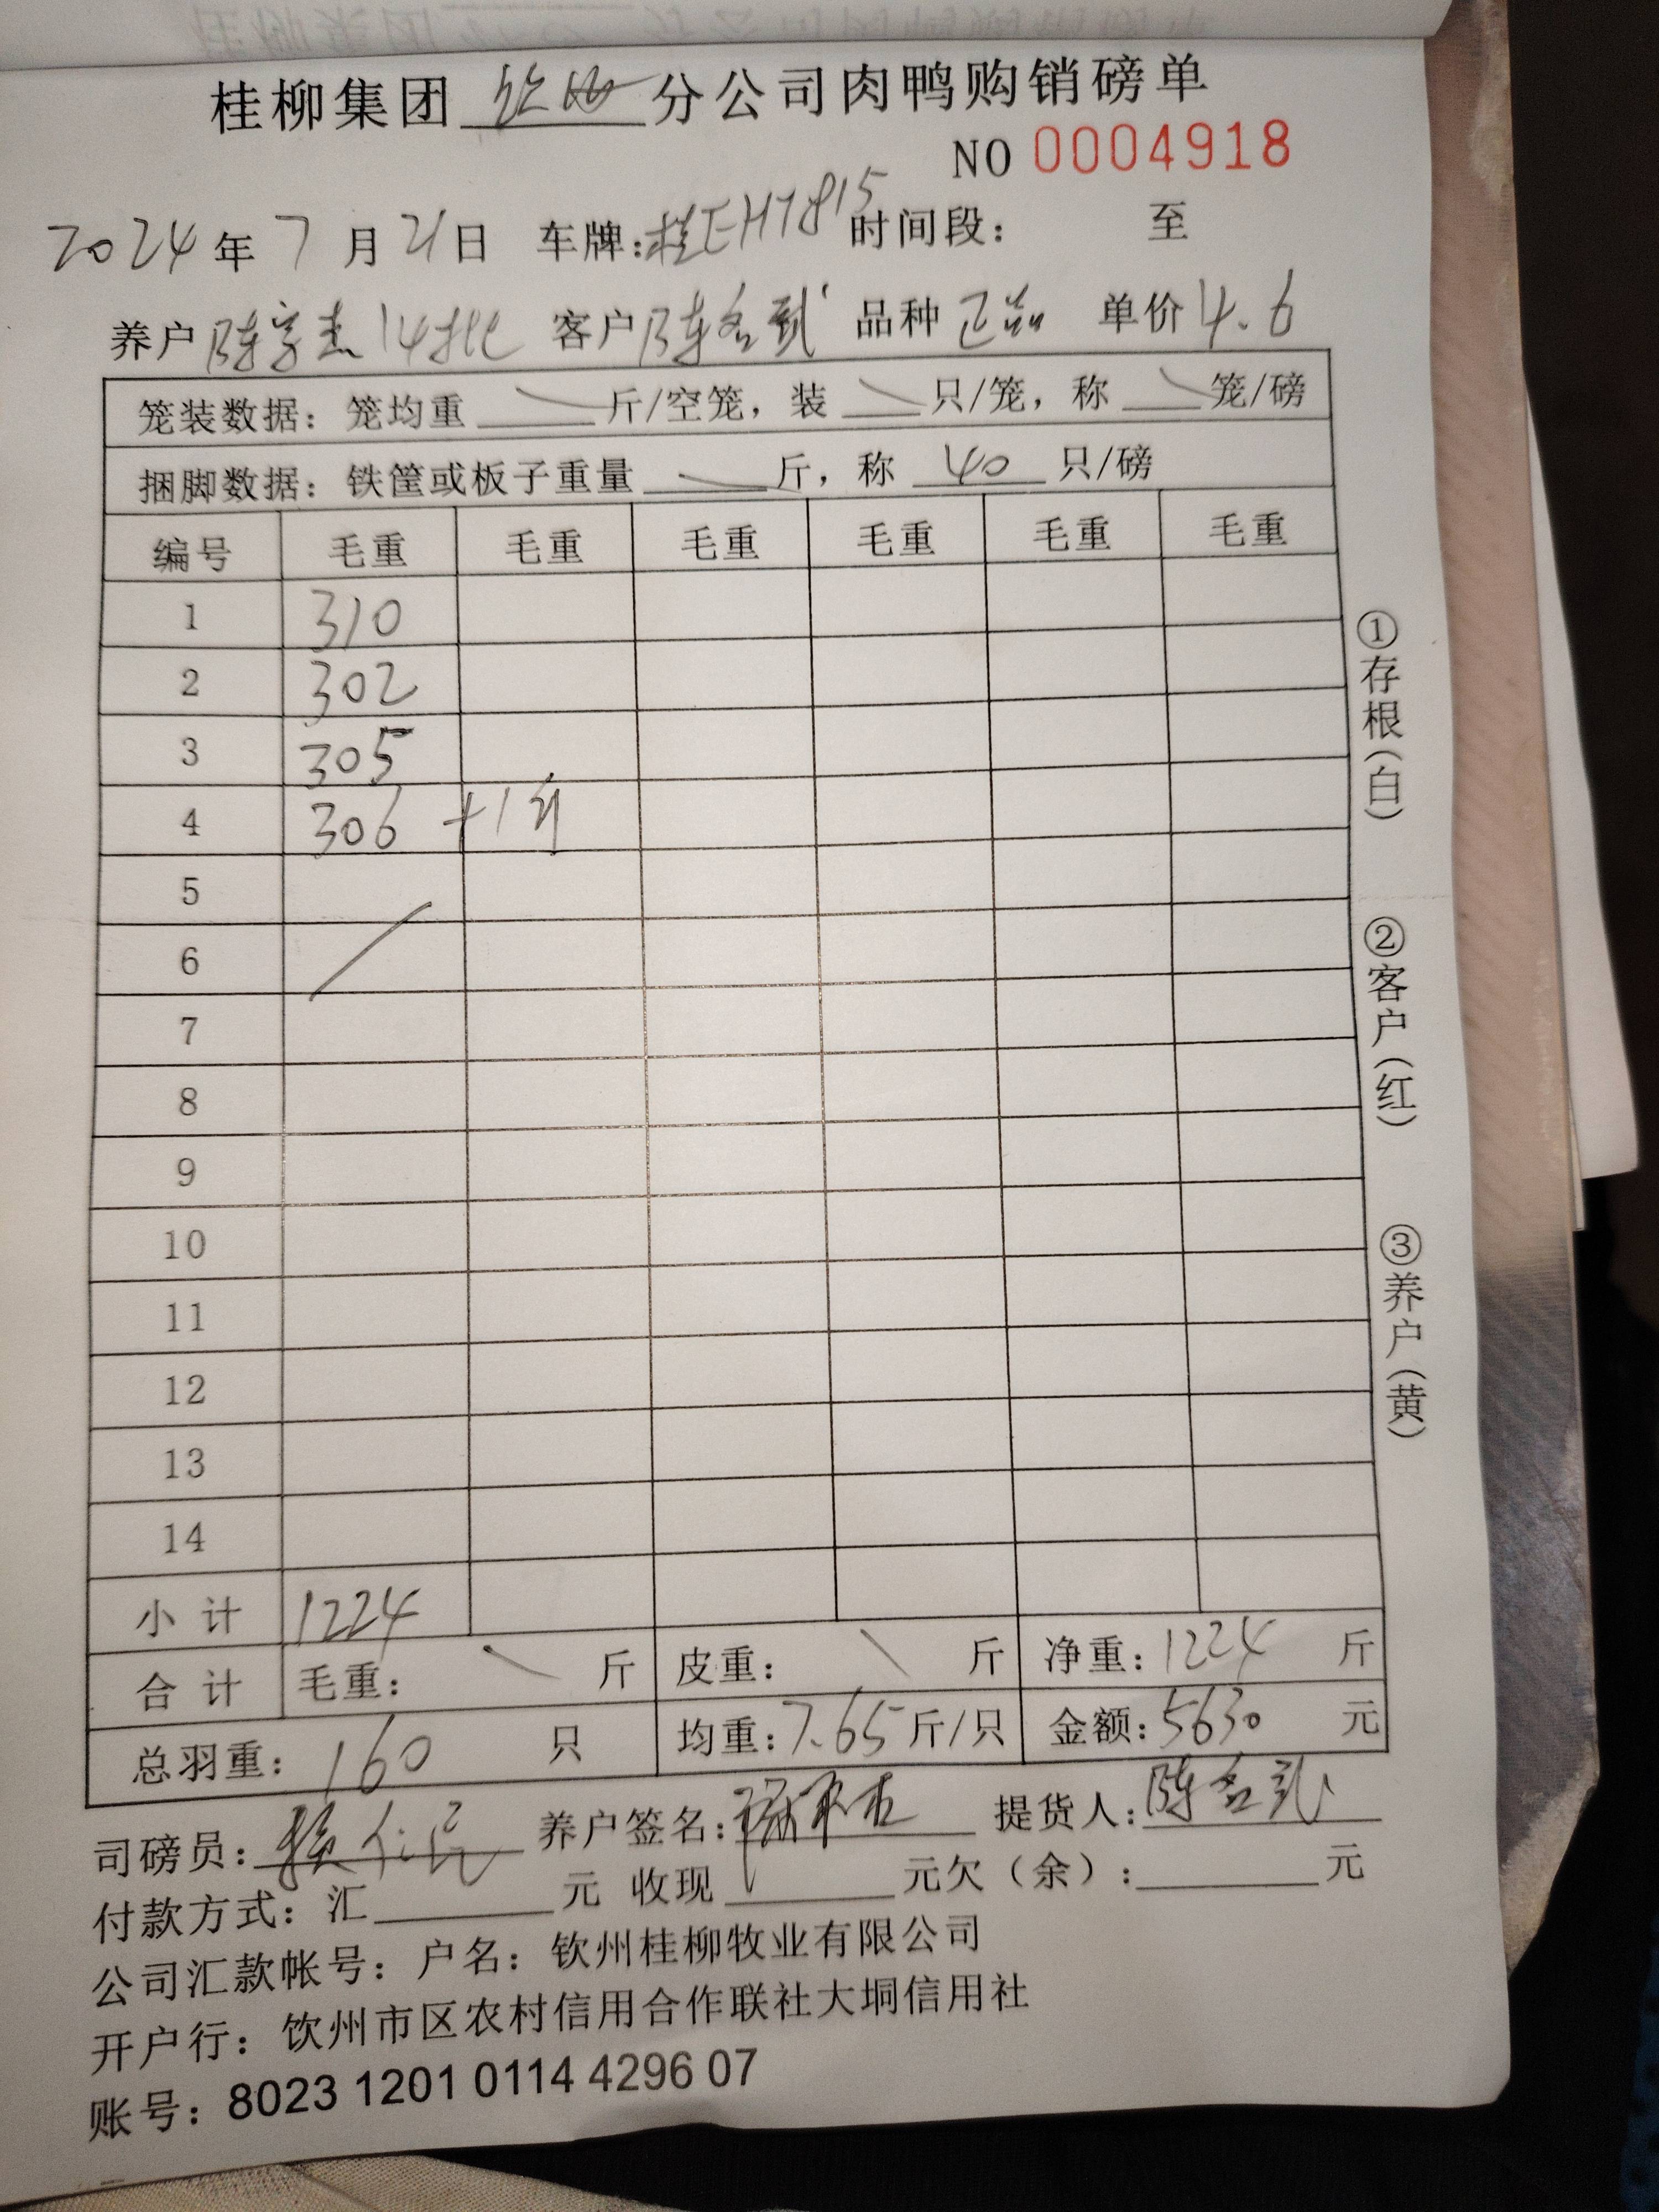 桂柳集团 钦州 分公司肉鸭购销磅单
NO 0004918
2024 年 7 月 21 日 车牌:桂EH7815 时间段: 至
养户 陈 14批 客户 陈 品种 正品 单价 4.6
笼装数据: 笼均重 斤/空笼, 装 只/笼, 称 笼/磅
捆脚数据: 铁筐或板子重量 斤, 称 40 只/磅
编号 毛重 毛重 毛重 毛重 毛重 毛重
1 310
2 302
3 305
4 306 +1斤
5
6
7
8
9
10
11
12
13
14
小计 1224
合计 毛重: 斤 皮重: 斤 净重: 1224 斤
总羽重: 160 只 均重: 7.65 斤/只 金额: 5630 元
司磅员: 养户签名: 提货人: 陈
付款方式: 汇 元 收现 元欠(余): 元
公司汇款帐号: 户名: 钦州桂柳牧业有限公司
开户行: 钦州市区农村信用合作联社大垌信用社
账号: 8023 1201 0114 4296 07
①存根(白)
②客户(红)
③养户(黄)